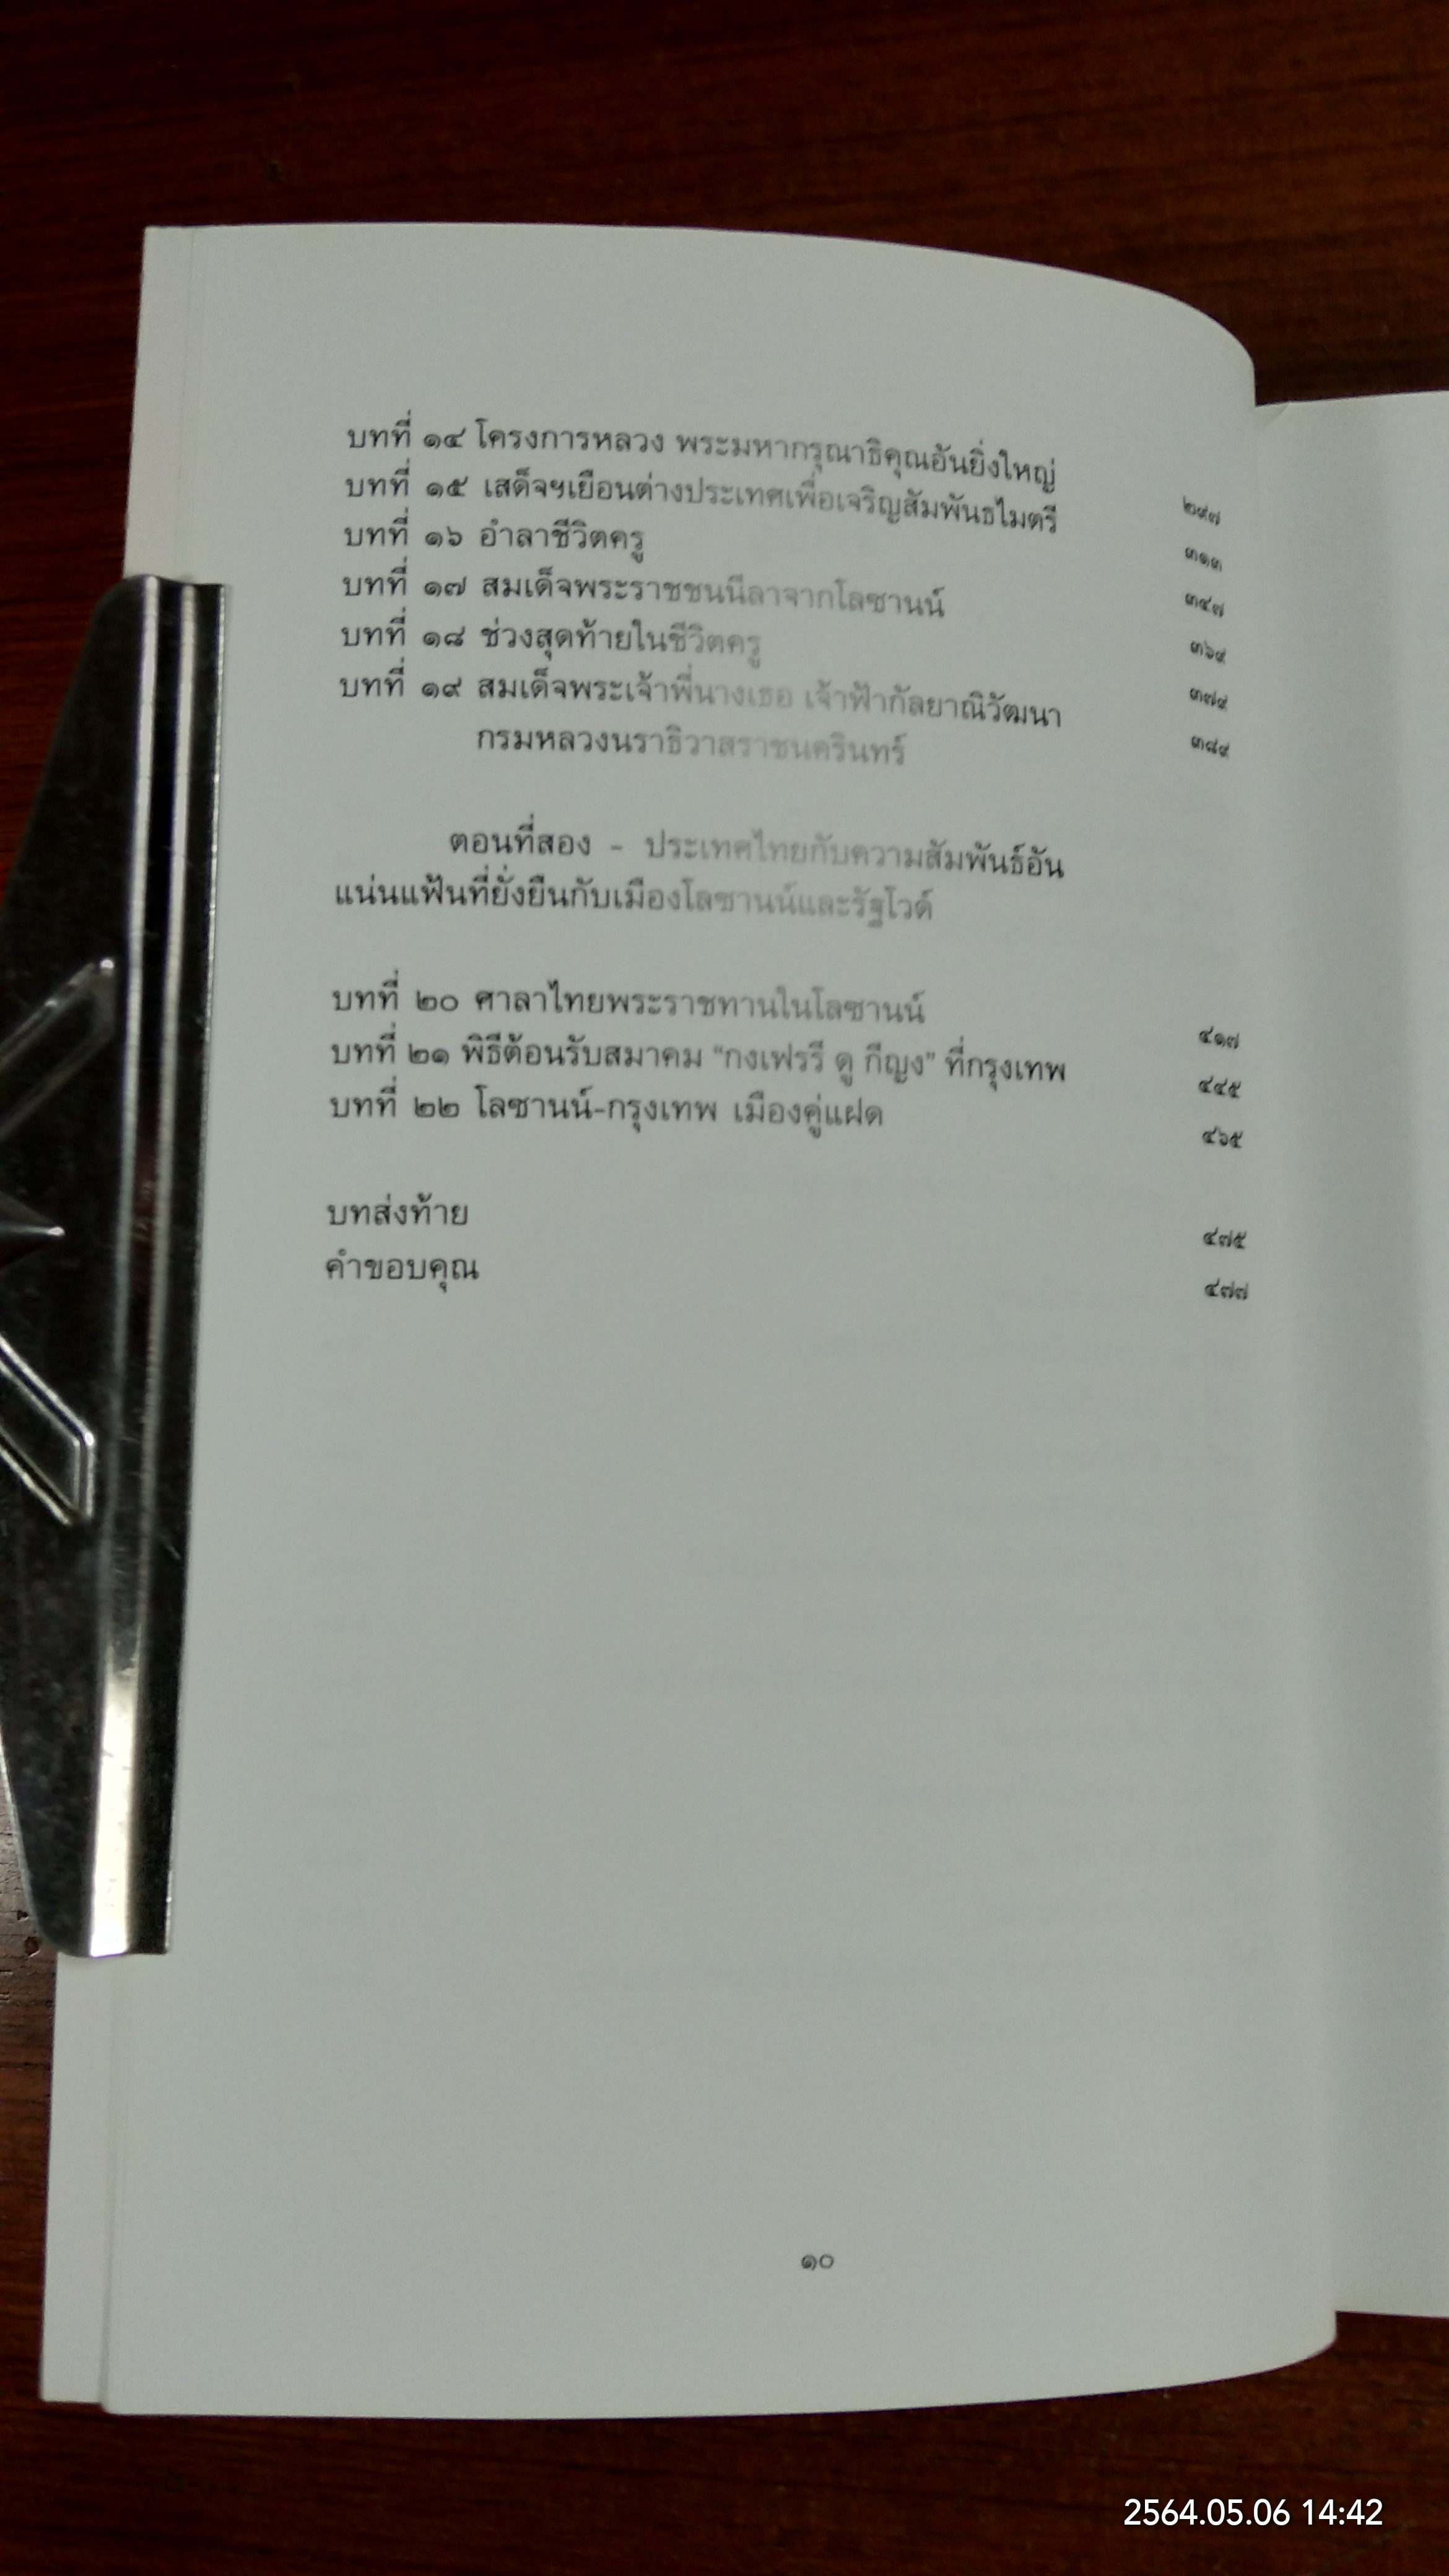 บทที่ ๑๔ โครงการหลวง พระมหากรุณาธิคุณอันยิ่งใหญ่ ๒๙๗
บทที่ ๑๕ เสด็จฯเยือนต่างประเทศเพื่อเจริญสัมพันธไมตรี ๓๑๓
บทที่ ๑๖ อำลาชีวิตครู ๓๔๗
บทที่ ๑๗ สมเด็จพระราชชนนีลาจากโลซานน์ ๓๖๙
บทที่ ๑๘ ช่วงสุดท้ายในชีวิตครู ๓๗๙
บทที่ ๑๙ สมเด็จพระเจ้าพี่นางเธอ เจ้าฟ้ากัลยาณิวัฒนา ๓๘๙
กรมหลวงนราธิวาสราชนครินทร์
ตอนที่สอง - ประเทศไทยกับความสัมพันธ์อัน
แน่นแฟ้นที่ยั่งยืนกับเมืองโลซานน์และรัฐโวด์
บทที่ ๒๐ ศาลาไทยพระราชทานในโลซานน์ ๔๑๗
บทที่ ๒๑ พิธีต้อนรับสมาคม “กงเฟรรี ดู กีญง” ที่กรุงเทพ ๔๔๕
บทที่ ๒๒ โลซานน์-กรุงเทพ เมืองคู่แฝด ๔๖๕
บทส่งท้าย ๔๗๕
คำขอบคุณ ๔๗๗
๑๐
2564.05.06 14:42